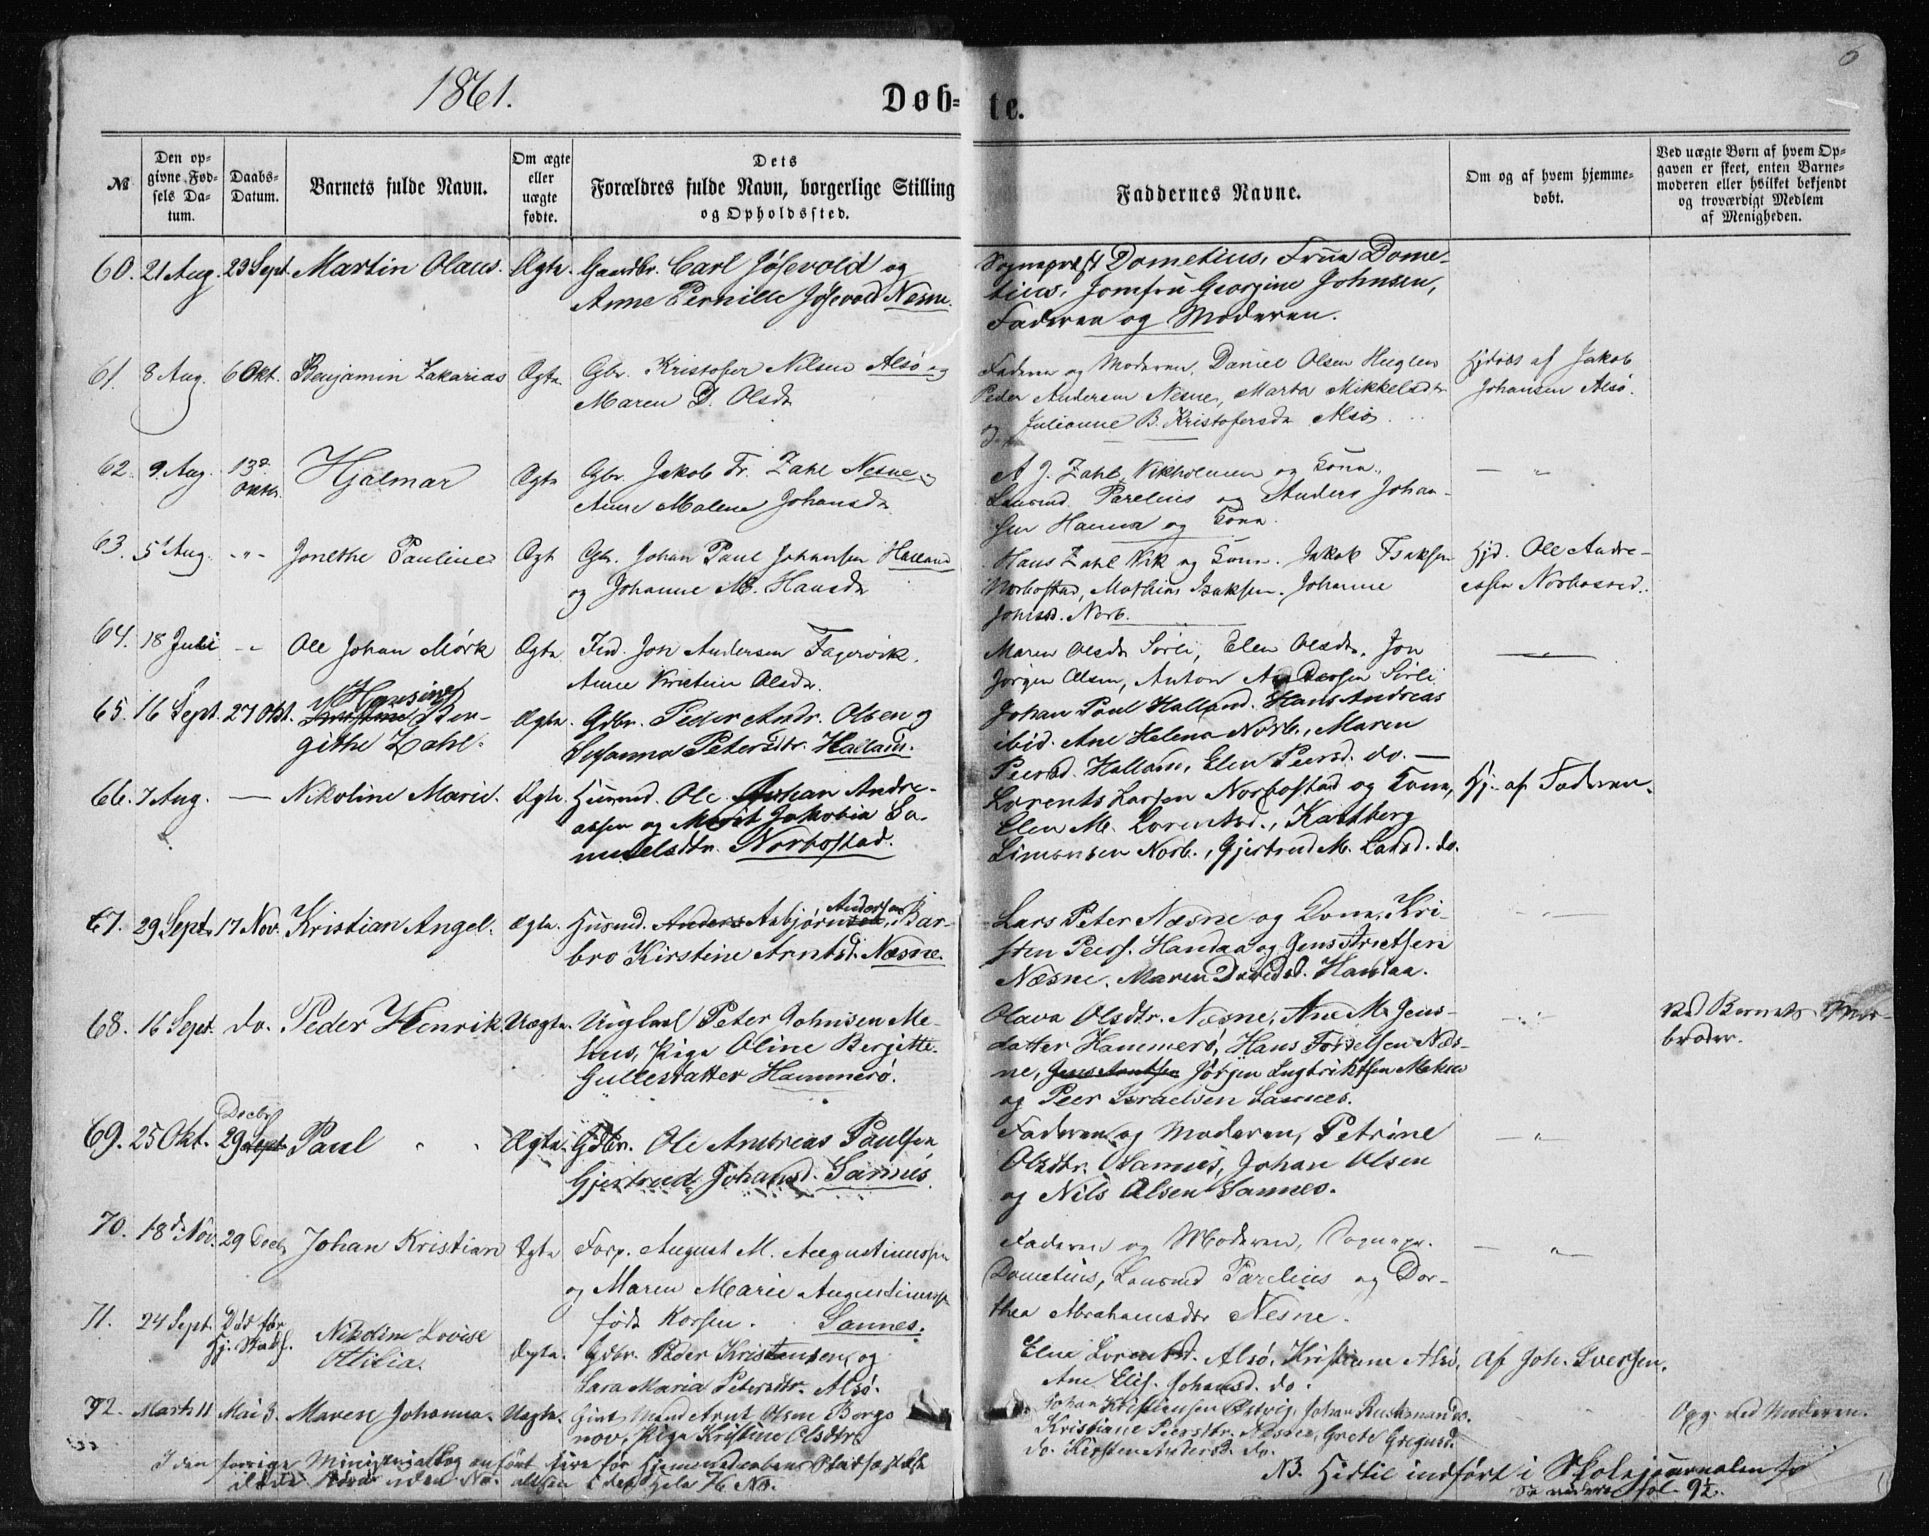 1861.
Døb=
te.
6
№
Den op=
givne Fød=
sels Da=
tum.
Daabs=
Datum.
Barnets fulde Navn.
Om ægte
eller
uægte
fødte.
Dets
Forældres fulde Navn, borgerlige Stilling
og Opholdssted.
Faddernes Navne.
Om og af hvem hjemme=
døbt.
Ved uægte Børn af hvem Op=
gaven er skeet, enten Barne=
moderen eller hvilket bekjendt
og troværdigt Medlem
af Menigheden.
60. 21 Aug. 23 Sept. Martin Olaus. Ægte. Gaardbr. Carl Jösevold og
Anne Pernille Jösevold Nesne.
Dometius, Frue Dome-
tius, Jomfru Georgine Johnsen,
Faderen og Moderen.
61. 8 Aug. 6 Okt. Benjamin Zakarias Ægte Gbr. Kristofer Nilsen Alsø og
Maren D. Olsdr
Faderen og Moderen, Daniel Olsen Huglen
Peder Andersen Nesne, Marta Mikkelsdr
og Julianne B. Kristofersdr Alsø
Hjdøbt af Jakob
Johansen Alsø.
62. 9 Aug. 13de Oktbr. Hjalmar Ægte Gbr. Jakob Fr. Zahl Nesne og
Anne Malene Johansdr
A J. Zahl, Vikholmen og Kone,
Lensmd. Parelius og Anders Johan-
sen Hanna og Kone.
— " —
63. 5 Aug. -"- Jonethe Pauline Ægt Gbr. Johan Paul Johansen Halland
og Johanne M. Hansdr
Hans Zahl Vik og Kone. Jakob Isaksen
Norbostad, Mathias Isaksen. Johanne
Jonsd. Norb.
Hjd. Ole Andre-
essen Norbostad.
64. 18 Juli -"- Ole Johan Mørk Ægte Ind. Jon Andersen Fagervik,
Anne Kirstine Olsdr.
Maren Olsdr Sørli, Elen Olsdr. Jon
Jörgen Olsen, Anton Andersen Sørli
65. 16 Sept. 27 Okt. Hansine Ber-
githe Zahl. Ægte. Gdbr. Peder Andr. Olsen og
Susanna Petersdtr. Halland.
Johan Paul Halland. Hans Andreas
ibid. Ane Helena Norb., Maren
Peersd. Halland, Elen Peersd. do. —
66. 7 Aug. — Nikoline Marie. Ægte. Husmd. Ole Andre-
assen og Jakobia Sa-
muelsdtr. Norbostad.
Lorents Larsen Norbostad og Kone,
Elen M. Lorentsd., Karlberg
Simonsen Norb., Gjertrud M. Larsd. do.
Hj. af Faderen.
67. 29 Sept. 17 Nov. Kristian Angel. Ægte. Husmd. Anders Asbjørnsen Andersen, Bar-
bro Kirstine Arntsd. Næsne.
Lars Peter Næsne og Kone, Kri-
sten Peers. Handaa og Jens Arntsen
Næsne. Maren Davidsd. Handaa.
68. 16 Sept. do. Peder Henrik. Uægte. Ungkarl Peter Johnsen Me-
hus, Pige Oline Bergitte
Gullesdatter Hammerø.
Olava Olsdtr. Næsne, Ane M. Jens-
datter Hammerø, Hans Næs-
ne, Jens Arntsen Jörgen Ingbriktsen Mehus
og Peer Israelsen Sannes.
Ved Barnets Mor-
broder.
69. 25 Okt. 29 Decbr Sept. Paul " " Ægte. Gdbr. Ole Andreas Paulsen,
Gjertrud Johansd. Sannes.
Faderen og Moderen, Petrine
Olsdtr. Sannes, Johan Olsen
og Nils Olsen Sannes.
— " —
70. 18de Nov. 29 Decbr Johan Kristian Ægte Forp. August M. Augustinussen
og Maren Marie Augustinussen
född Korsen. Sannes.
Faderen og Moderen, Sognepr.
Dometius, Lensmd Parelius og Dor-
thea Abrahamsdtr Nesne.
— " —
71. 24 Sept. Död før
Hj. Stadf. Nikoline Lovise
Ottilia. Ægte. Gdbr. Peder Kristensen og
Sara Maria Petersdtr. Alsø.
Elne Lorentsd. Alsø, Kristianne Alsø,
Ane Elis. Johansd. do.
Af Joh. Iversen.
72. Marts 11 Mai 3. Maren Johanna. Uægte. Gift Mand Arnt Olsen Borge
nov, Pige Kristine Olsdtr.
Johan Kristiansen Johan do.
Kristiane Peersdtr. Næsne, Grete Gregersd.
do. Kirsten Andersd. do.
Opg. ved Moderen.
I den forrige Ministerialbog anført
NB. Hidtil indført i Skolejournalen
Se videre fol. 92.